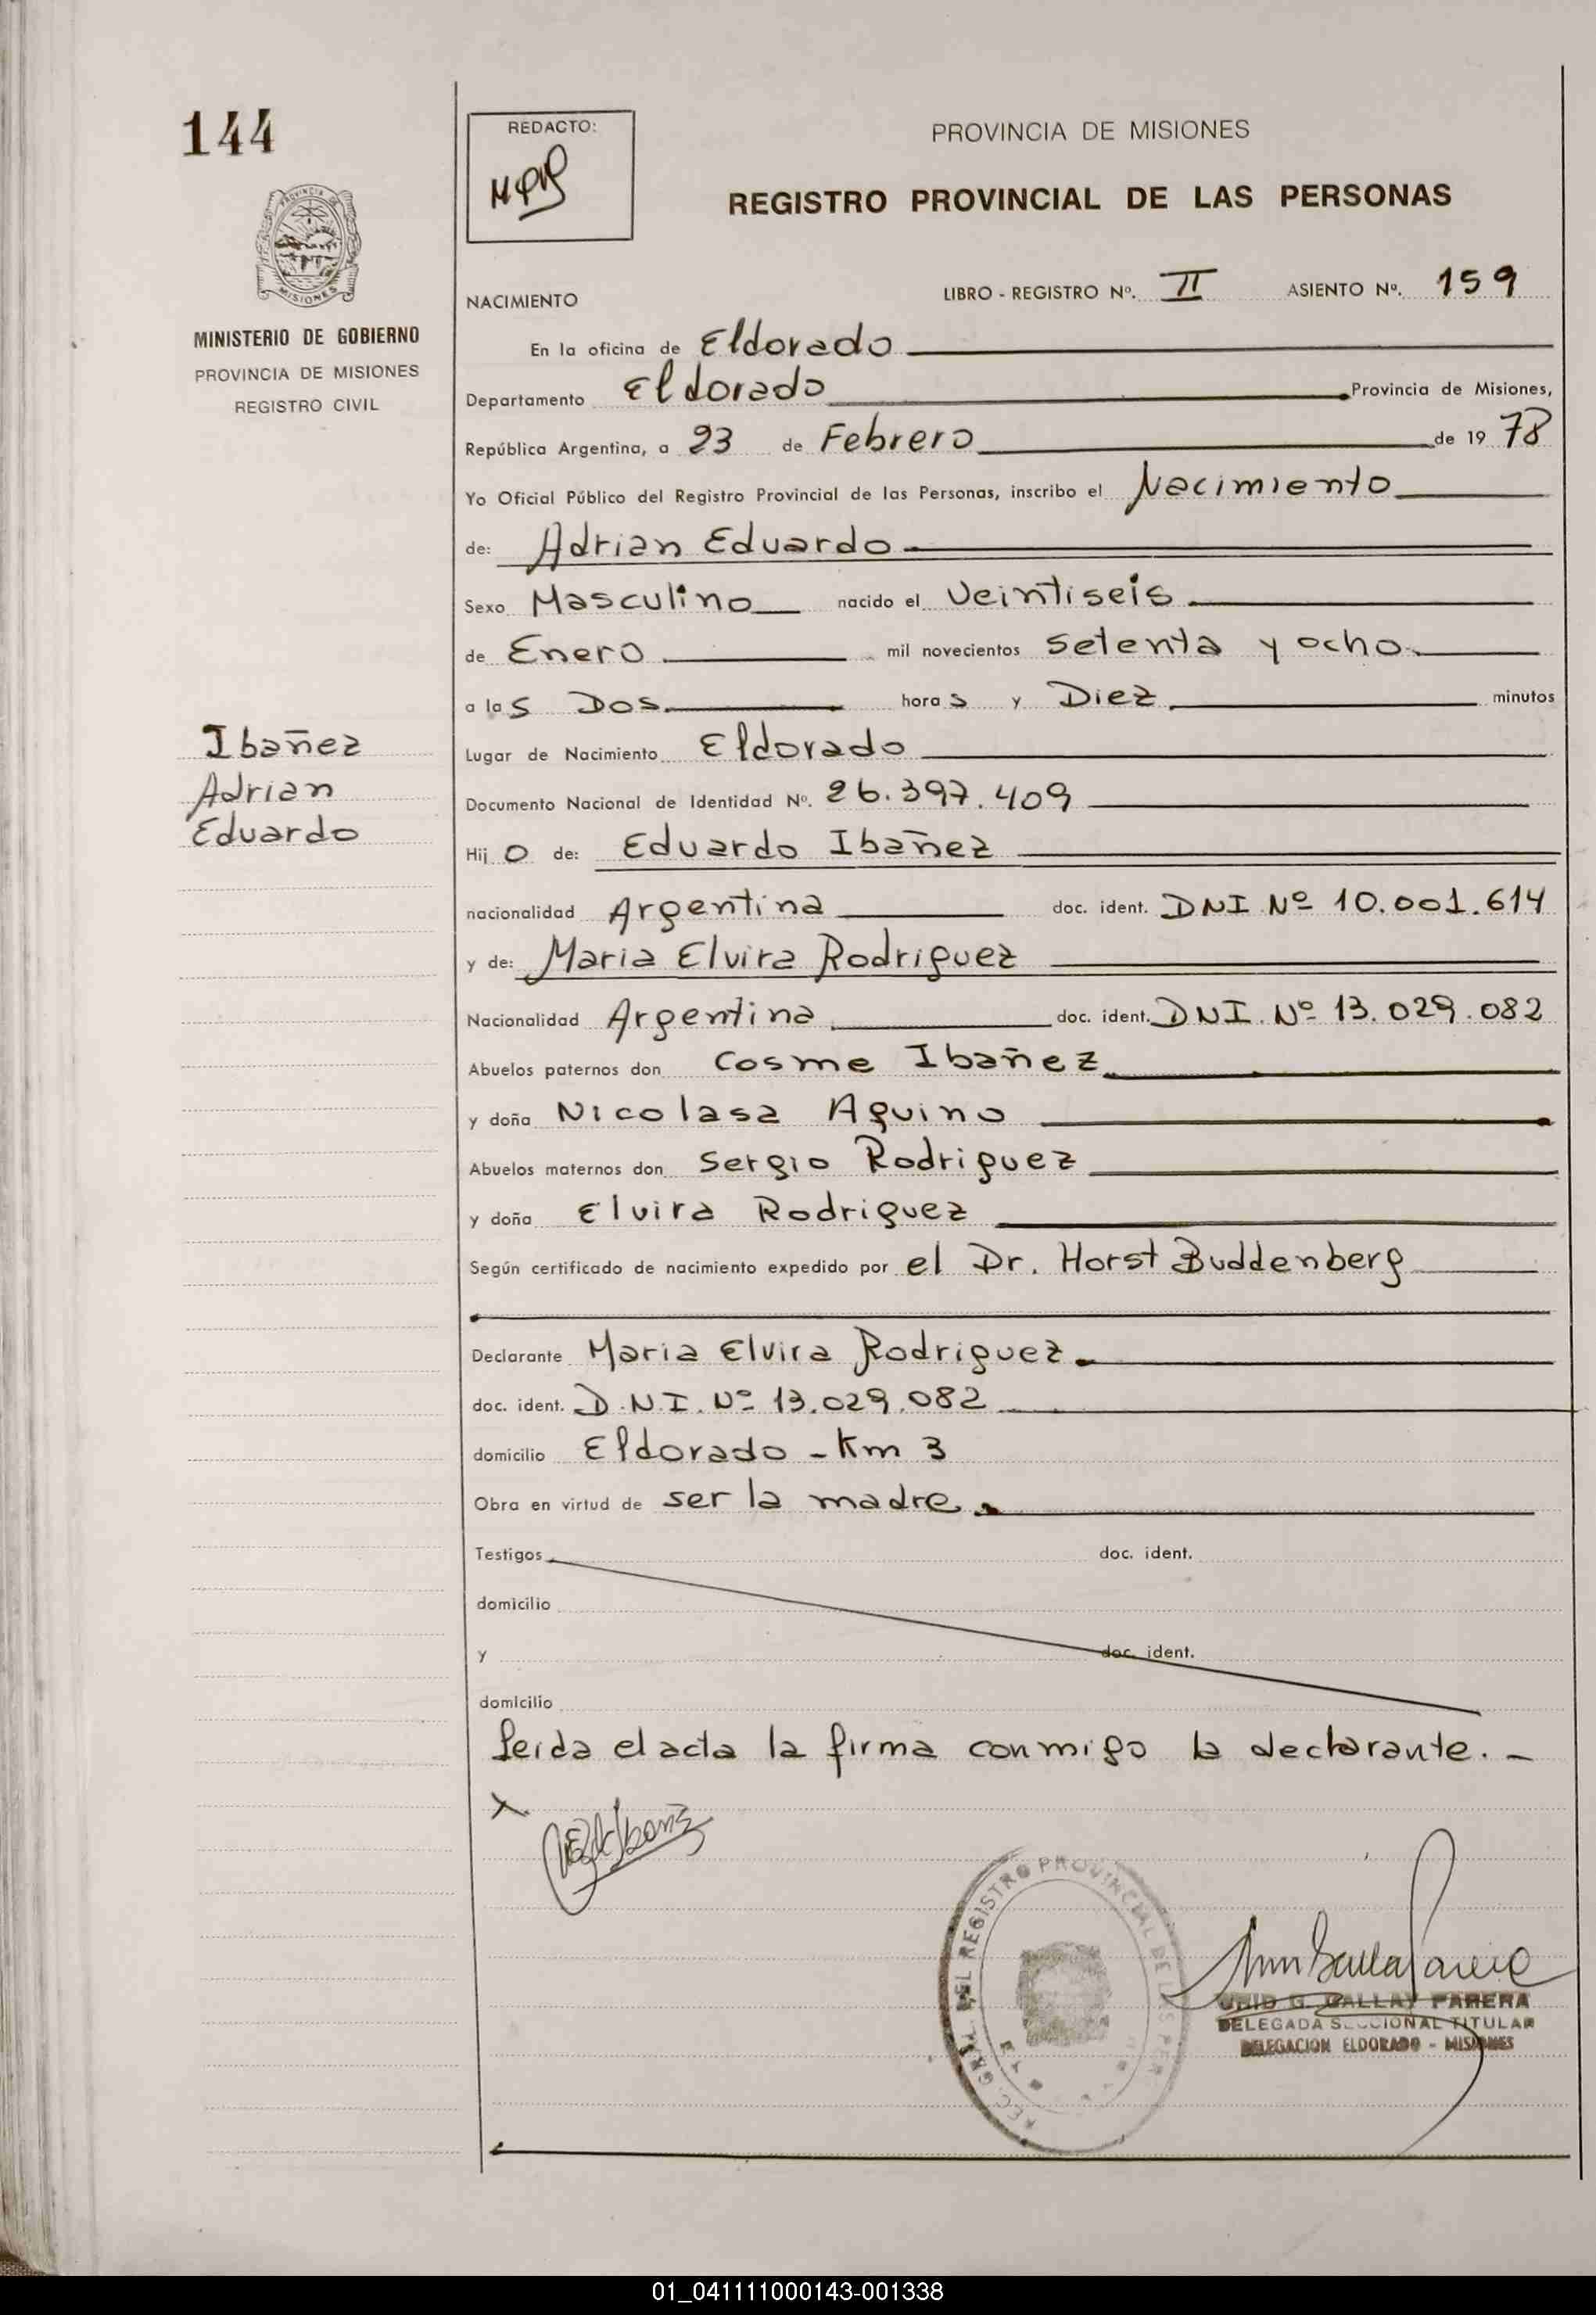 144
PROVINCIA
MISIONES
MINISTERIO DE GOBIERNO
PROVINCIA DE MISIONES
REGISTRO CIVIL
Ibañez
Adrian
Eduardo
REDACTO:
PROVINCIA DE MISIONES
REGISTRO PROVINCIAL DE LAS PERSONAS
NACIMIENTO LIBRO - REGISTRO Nº. II ASIENTO Nº. 159
En la oficina de Eldorado
Departamento Eldorado Provincia de Misiones,
República Argentina, a 23 de Febrero de 1978
Yo Oficial Público del Registro Provincial de las Personas, inscribo el Nacimiento
de: Adrian Eduardo
Sexo Masculino nacido el Veintiseis
de Enero mil novecientos setenta y ocho
a las Dos horas y Diez minutos
Lugar de Nacimiento Eldorado
Documento Nacional de Identidad Nº. 26.397.409
Hijo de: Eduardo Ibañez
nacionalidad Argentina doc. ident. DNI Nº 10.001.614
y de: Maria Elvira Rodriguez
Nacionalidad Argentina doc. ident. DNI. Nº 13.029.082
Abuelos paternos don Cosme Ibañez
y doña Nicolasa Aquino
Abuelos maternos don Sergio Rodriguez
y doña Elvira Rodriguez
Según certificado de nacimiento expedido por el Dr. Horst Buddenberg
Declarante Maria Elvira Rodriguez
doc. ident. D.N.I. Nº 13.029.082
domicilio Eldorado - Km 3
Obra en virtud de ser la madre
Testigos doc. ident.
domicilio
y doc. ident.
domicilio
Leida el acta la firma conmigo la declarante. -
X
DEL REGISTRO PROVINCIAL DE LAS PER
G. GALLAY PARERA
DELEGADA SECCIONAL TITULAR
DELEGACION ELDORADO - MISIONES
01_041111000143-001338